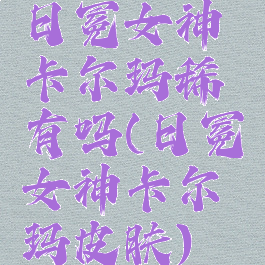 日冕女神
卡尔玛稀
有吗(日冕
女神卡尔
玛皮肤)